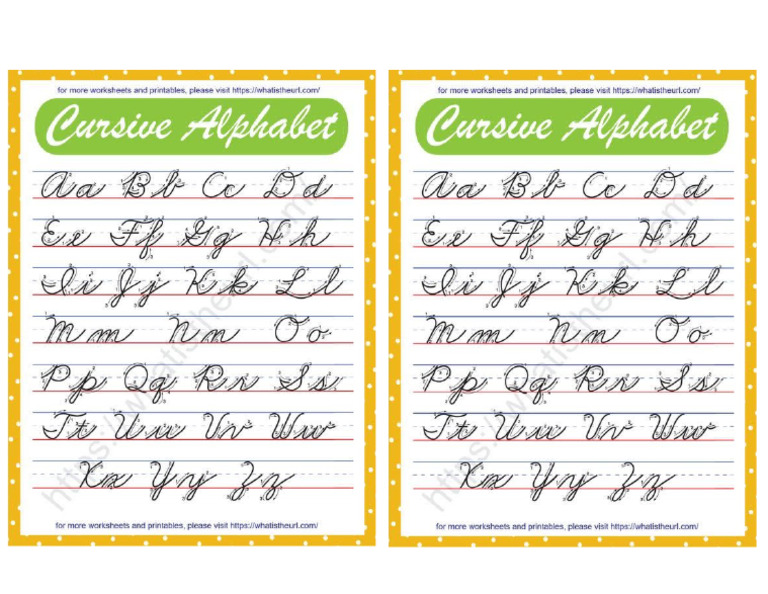 for more worksheets and printables, please visit https://whatistheurl.com/
Cursive Alphabet
Aa Bb Cc Dd
Ee Ff Gg Hh
Ii Jj Kk Ll
Mm Nn Oo
Pp Qq Rr Ss
Tt Uu Vv Ww
Xx Yy Zz
https://whatistheurl.com
for more worksheets and printables, please visit https://whatistheurl.com/
for more worksheets and printables, please visit https://whatistheurl.com/
Cursive Alphabet
Aa Bb Cc Dd
Ee Ff Gg Hh
Ii Jj Kk Ll
Mm Nn Oo
Pp Qq Rr Ss
Tt Uu Vv Ww
Xx Yy Zz
https://whatistheurl.com
for more worksheets and printables, please visit https://whatistheurl.com/